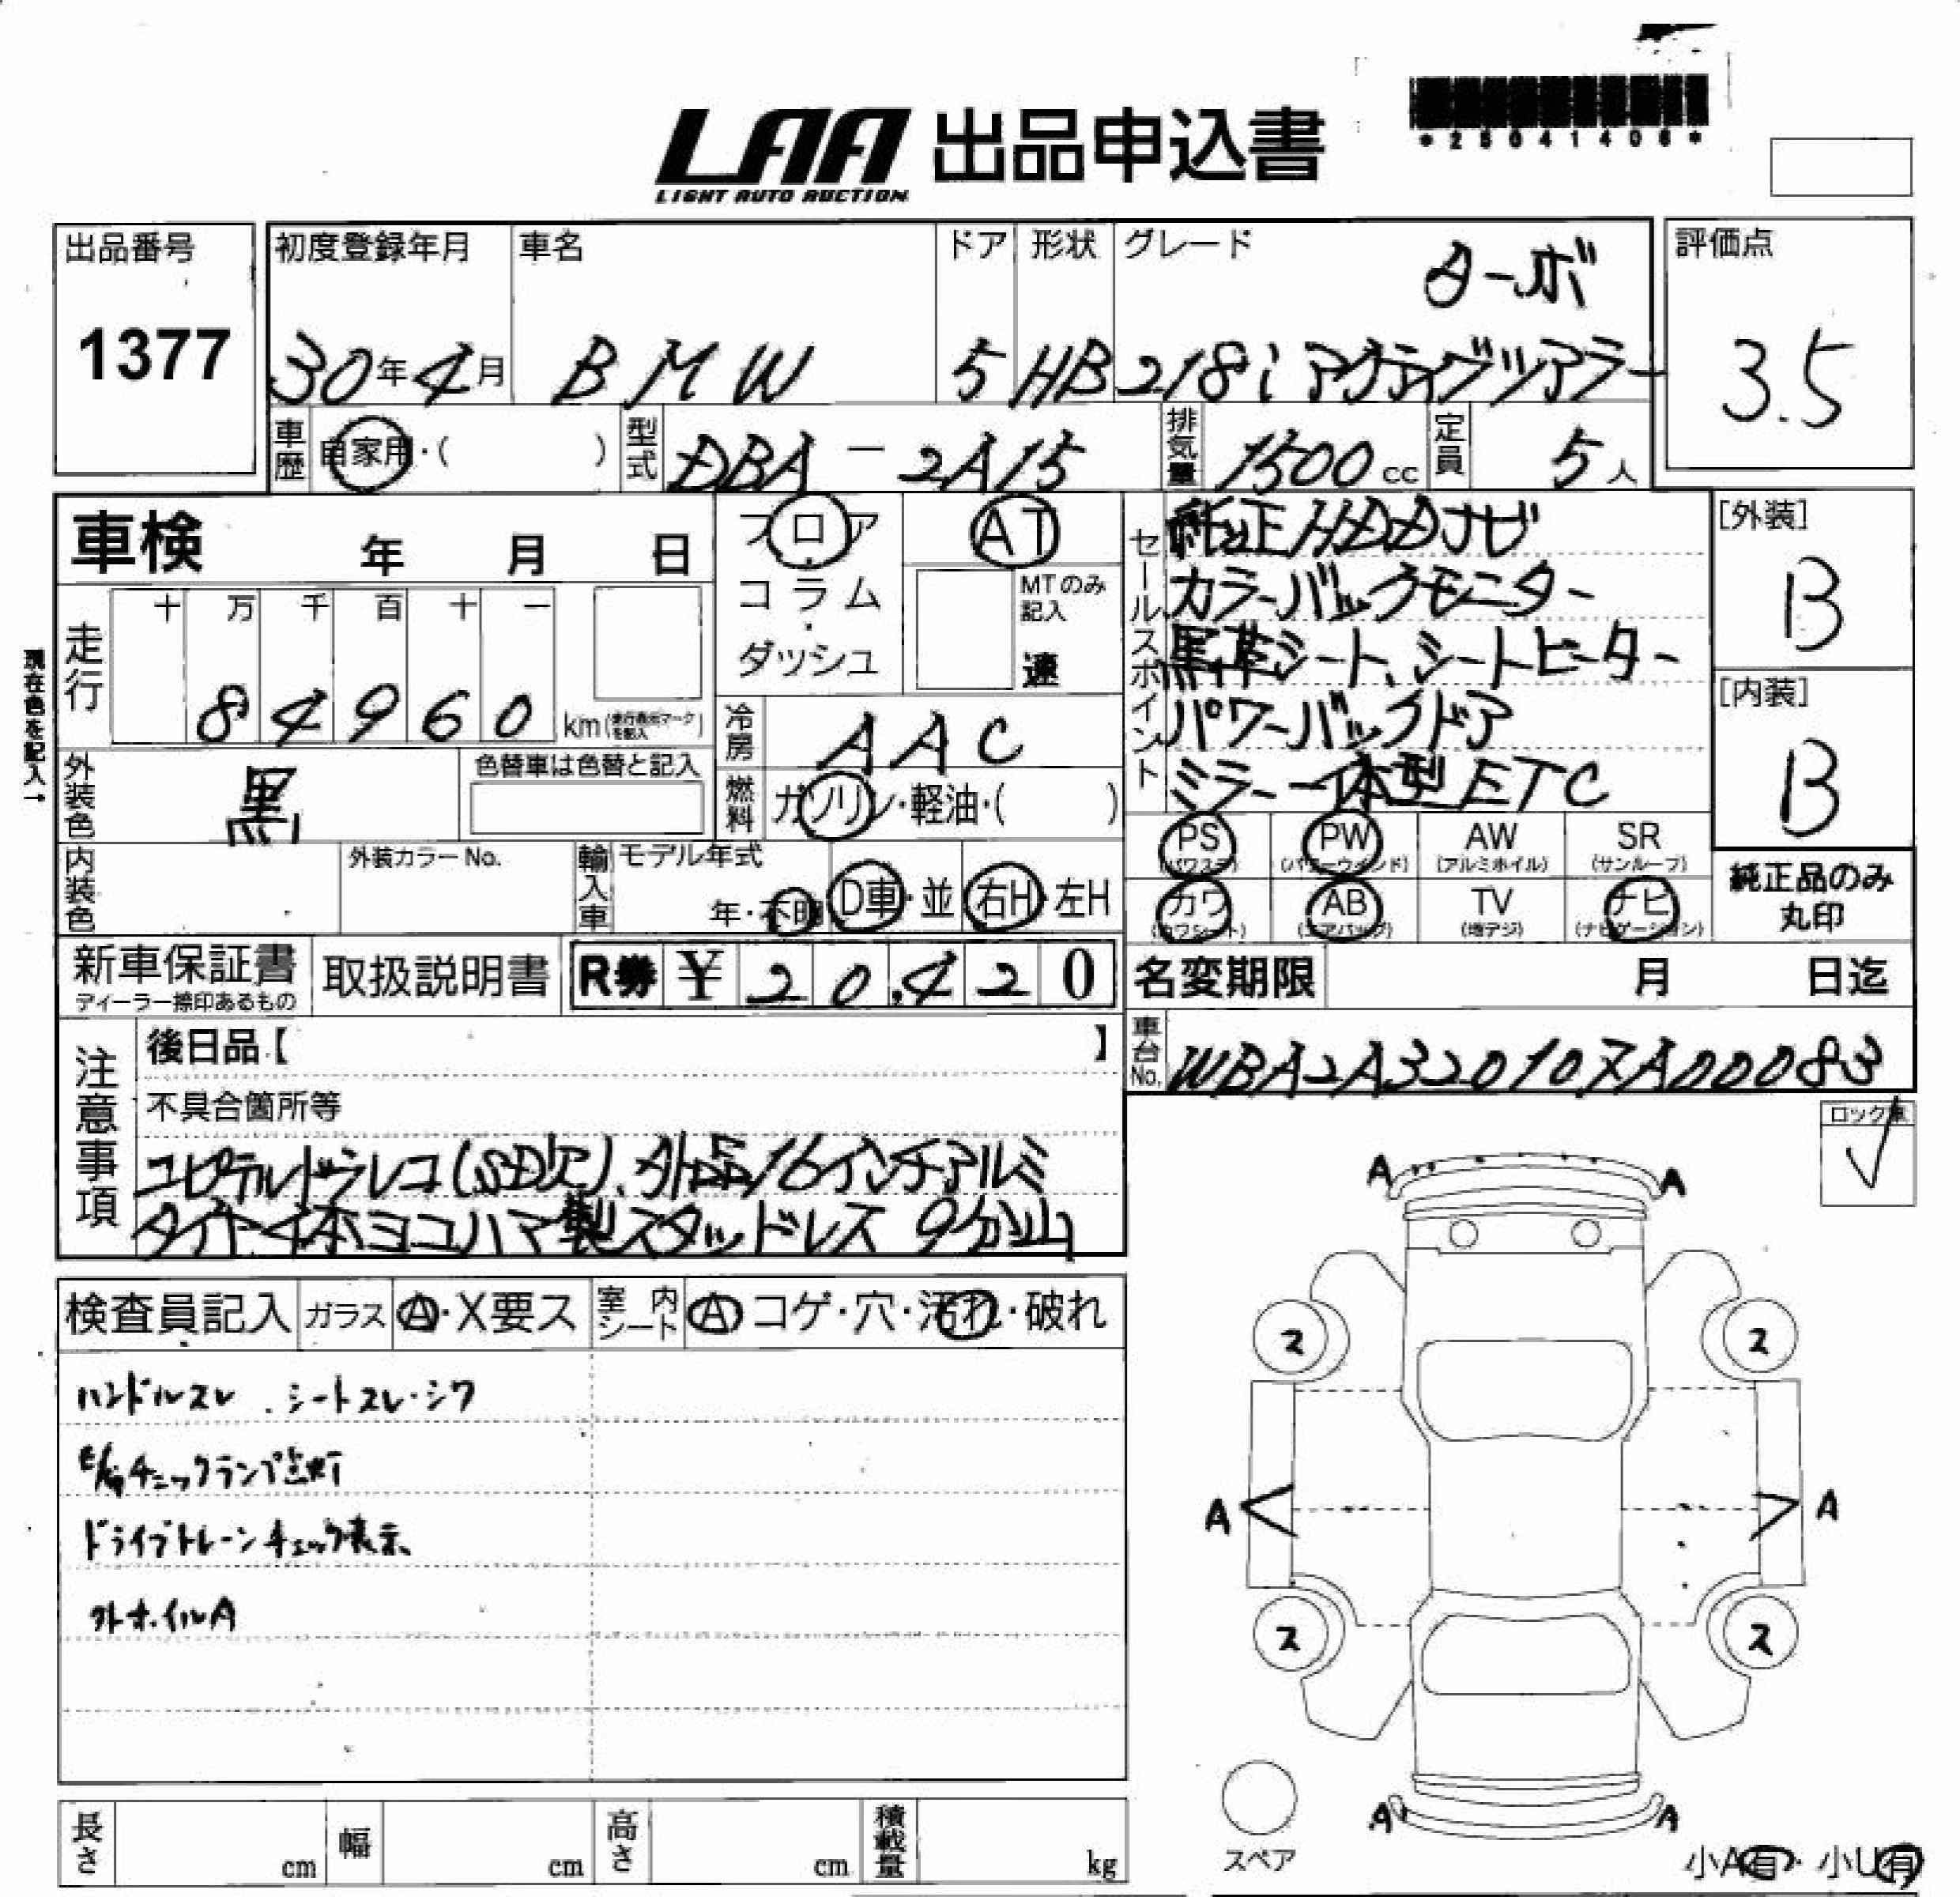 *25041406*
LAA 出品申込書
LIGHT AUTO AUCTION
出品番号 初度登録年月 車名 ドア 形状 グレード 評価点
ターボ
1377 30年4月 BMW 5 HB 218i アクティヴツアラー 3.5
車歴 自家用・( ) 型式 DBA-2A15 排気量 1500cc 定員 5人
車検 年 月 日
フロア・コラム・ダッシュ
AT
MTのみ記入 速
セールスポイント
純正HDDナビ
カラーバックモニター
黒革シート、シートヒーター
パワーバックドア
ミラー一体型ETC
[外装]
B
[内装]
B
現在色を記入→
走行 十 万 千 百 十 一
84960 km(走行表示マークを記入)
冷房 AAC
燃料 ガソリン・軽油・( )
外装色 黒 色替車は色替と記入
内装色 外装カラーNo. 輸入車 モデル年式 年・不明 D車・並 右H・左H
PS (パワステ) PW (パワーウィンド) AW (アルミホイル) SR (サンルーフ)
カワ (カワシート) AB (エアバッグ) TV (地デジ) ナビ (ナビゲーション)
純正品のみ丸印
新車保証書 ディーラー捺印あるもの 取扱説明書 R券 ¥ 20,420
名変期限 月 日迄
車台No. WBA2A320107A00083
注意事項
後日品【 】
不具合箇所等
ユピテルドラレコ(SD欠)、外品16インチアルミ
タイヤ4本ヨコハマ製スタッドレス 9分山
ロック車
✓
検査員記入 ガラス A・X要ス 室内シート A コゲ・穴・汚れ・破れ
ハンドルスレ . シートスレ・シワ
チェックランプ点灯
ドライブトレーンチェック表示
外ホイルA
A A
ス ス
A A
ス ス
A A
スペア
小A有・小U有
長さ cm 幅 cm 高さ cm 積載量 kg